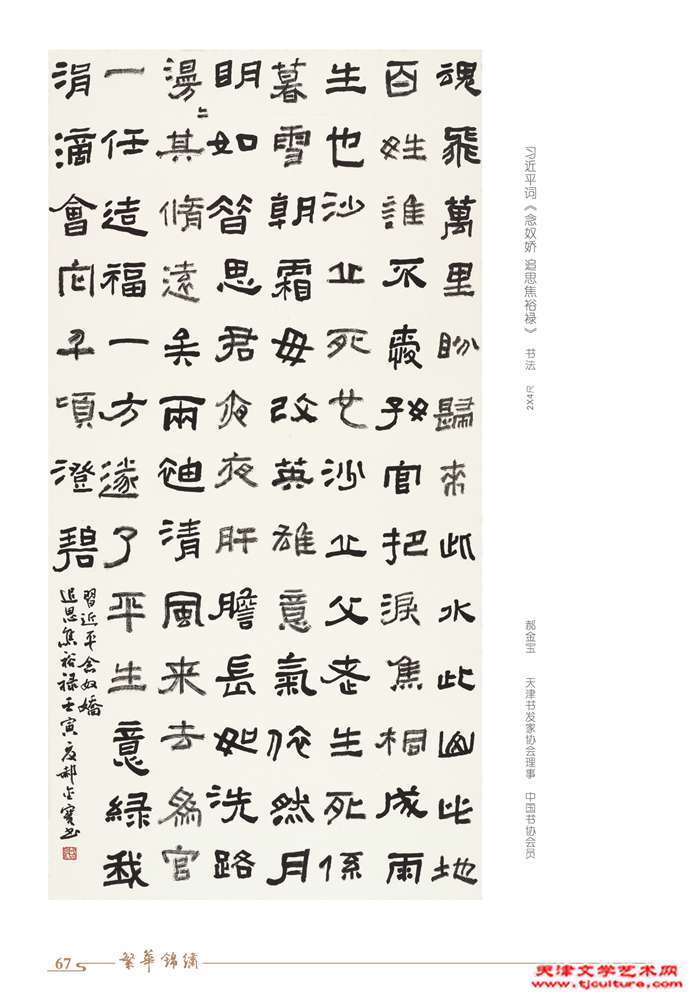 魂飛萬里盼歸来此水此山此地
百姓誰不愛好官把淚焦桐成雨
生也沙丘死也沙丘父老生死係
暮雪朝霜毋改英雄意氣依然月
明如昔思君夜夜肝膽長如洗路
漫〻其脩遠矣兩袖清風来去為官
一任造福一方遂了平生意緑我
涓滴會它千頃澄碧
習近平念奴嬌
追思焦裕禄壬寅夏郝金寶书
习近平词《念奴娇 追思焦裕禄》 书法 2X4尺
郝金宝 天津书发家协会理事 中国书协会员
67 繁華錦繡
天津文学艺术网
www.tjculture.com